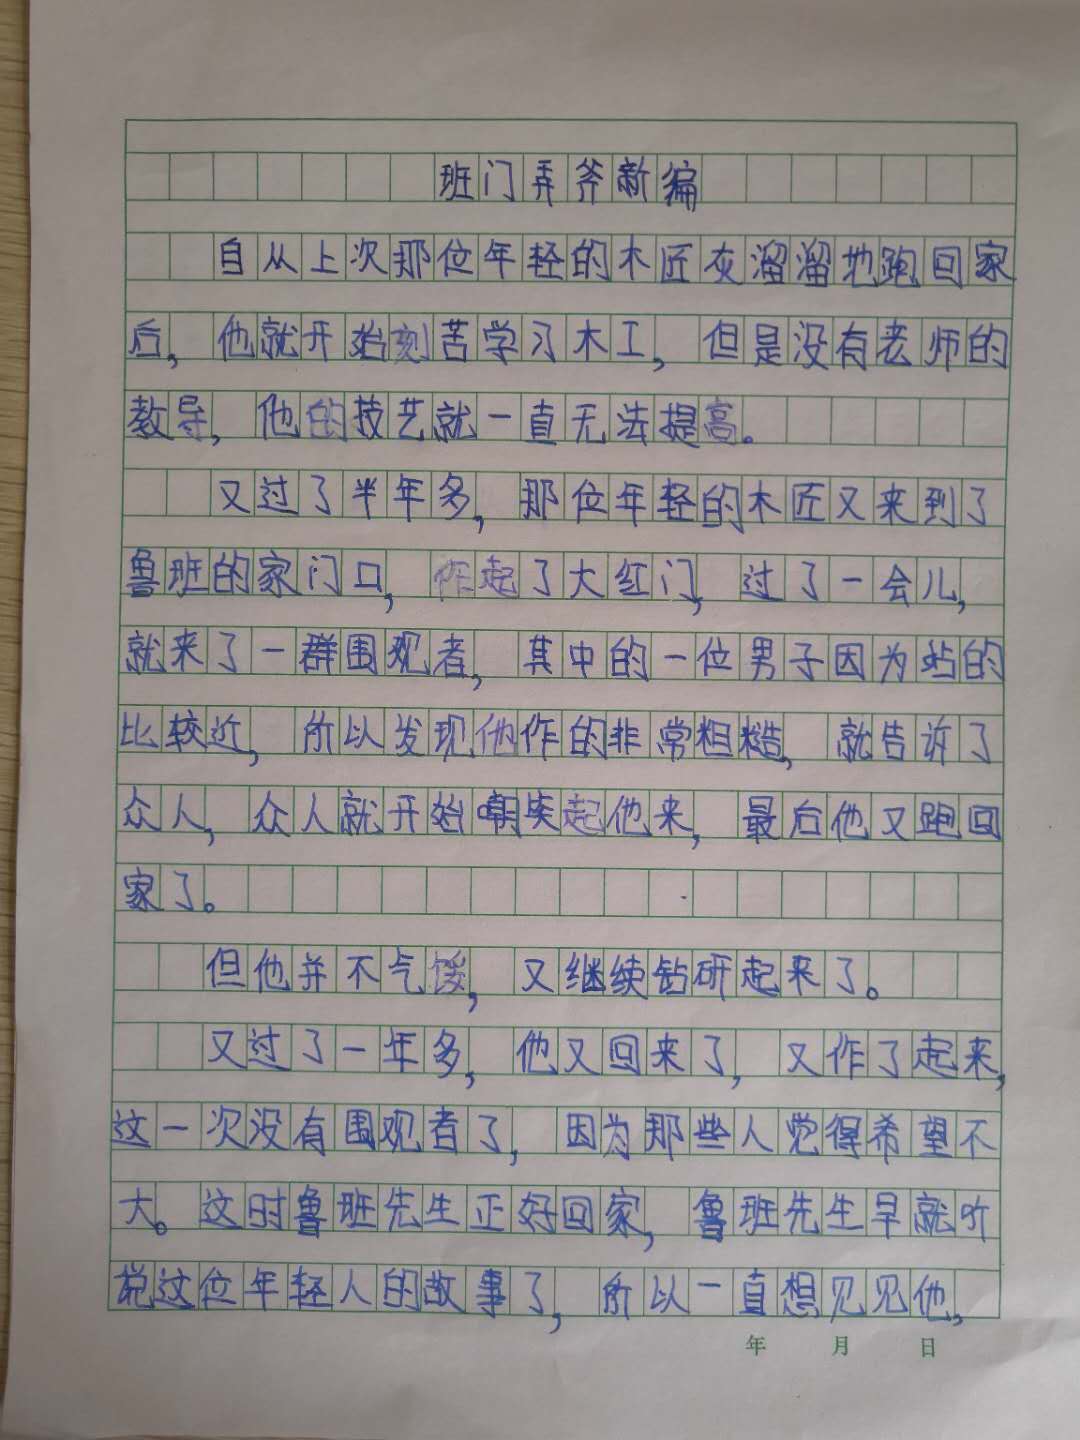 班门弄斧新编
自从上次那位年轻的木匠灰溜溜地跑回家
后，他就开始刻苦学习木工，但是没有老师的
教导，他的技艺就一直无法提高。
又过了半年多，那位年轻的木匠又来到了
鲁班的家门口，作起了大红门，过了一会儿，
就来了一群围观者，其中的一位男子因为站的
比较近，所以发现他作的非常粗糙，就告诉了
众人，众人就开始嘲笑起他来，最后他又跑回
家了。
但他并不气馁，又继续钻研起来了。
又过了一年多，他又回来了，又作了起来，
这一次没有围观者了，因为那些人觉得希望不
大。这时鲁班先生正好回家，鲁班先生早就听
说过位年轻人的故事了，所以一直想见见他，
年 月 日